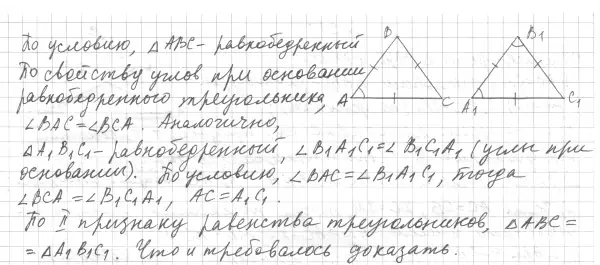 По условию, △ABC - равнобедренный
По свойству углов при основании
равнобедренного треугольника,
∠BAC=∠BCA. Аналогично,
△A₁B₁C₁ - равнобедренный, ∠B₁A₁C₁=∠B₁C₁A₁ (углы при
основании). По условию, ∠BAC=∠B₁A₁C₁, тогда
∠BCA=∠B₁C₁A₁, AC=A₁C₁.
По II признаку равенства треугольников, △ABC=
=△A₁B₁C₁. Что и требовалось доказать.
B
A
C
B₁
A₁
C₁